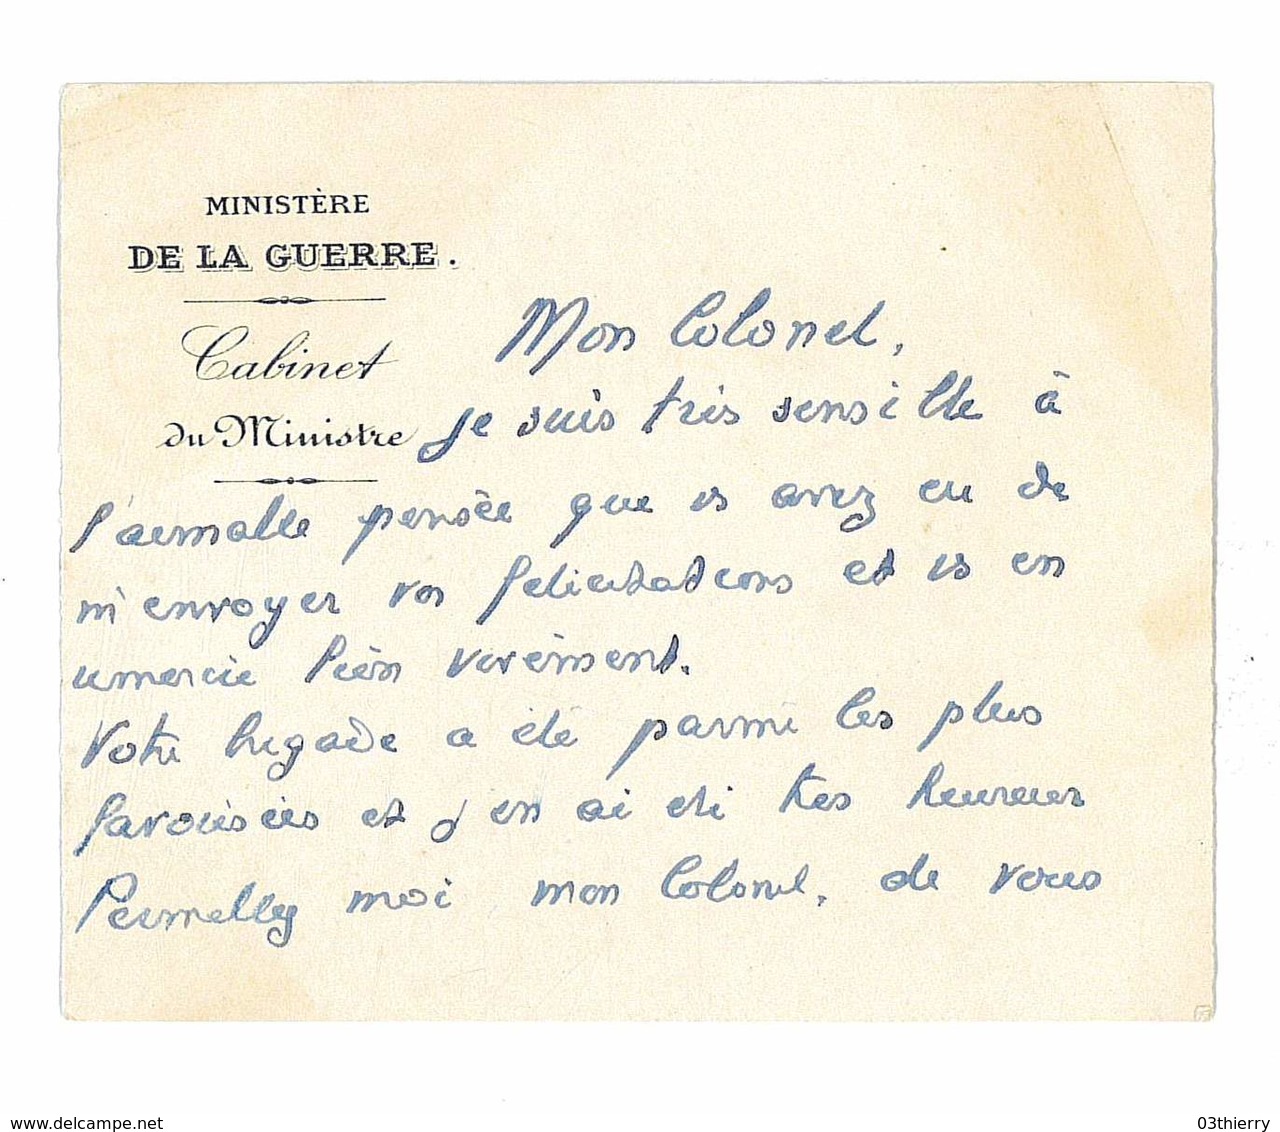 MINISTÈRE
DE LA GUERRE.
Cabinet
du Ministre
Mon Colonel,
je suis très sensible à
l'aimable pensée que vs avez eu de
m'envoyer vos félicitations et vs en
remercie bien vivement.
Votre brigade a été parmi les plus
favorisées et j'en ai été très heureux
Permettez moi mon Colonel, de vous
www.delcampe.net
03thierry